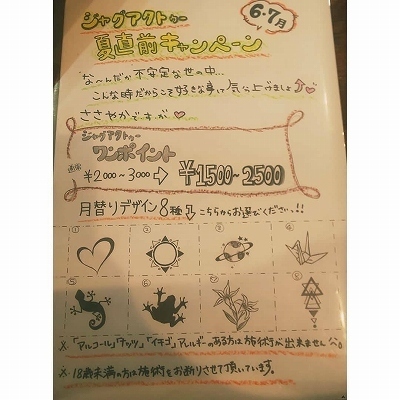 ジャグアタトゥー
6・7月
夏直前キャンペーン
な〜んだか不安定な世の中…
こんな時だからこそ好きな事して気分上げましょ♡
ささやかですが♡
ジャグアタトゥー
ワンポイント
通常
¥2000〜3000→¥1500〜2500
月替りデザイン8種 こちらからお選びください!!
① ② ③ ④
⑤ ⑥ ⑦ ⑧
※「アルコール」「ナッツ」「イチゴ」アレルギーのある方は施術が出来ません。
※18歳未満の方は施術をお断りさせて頂いています。